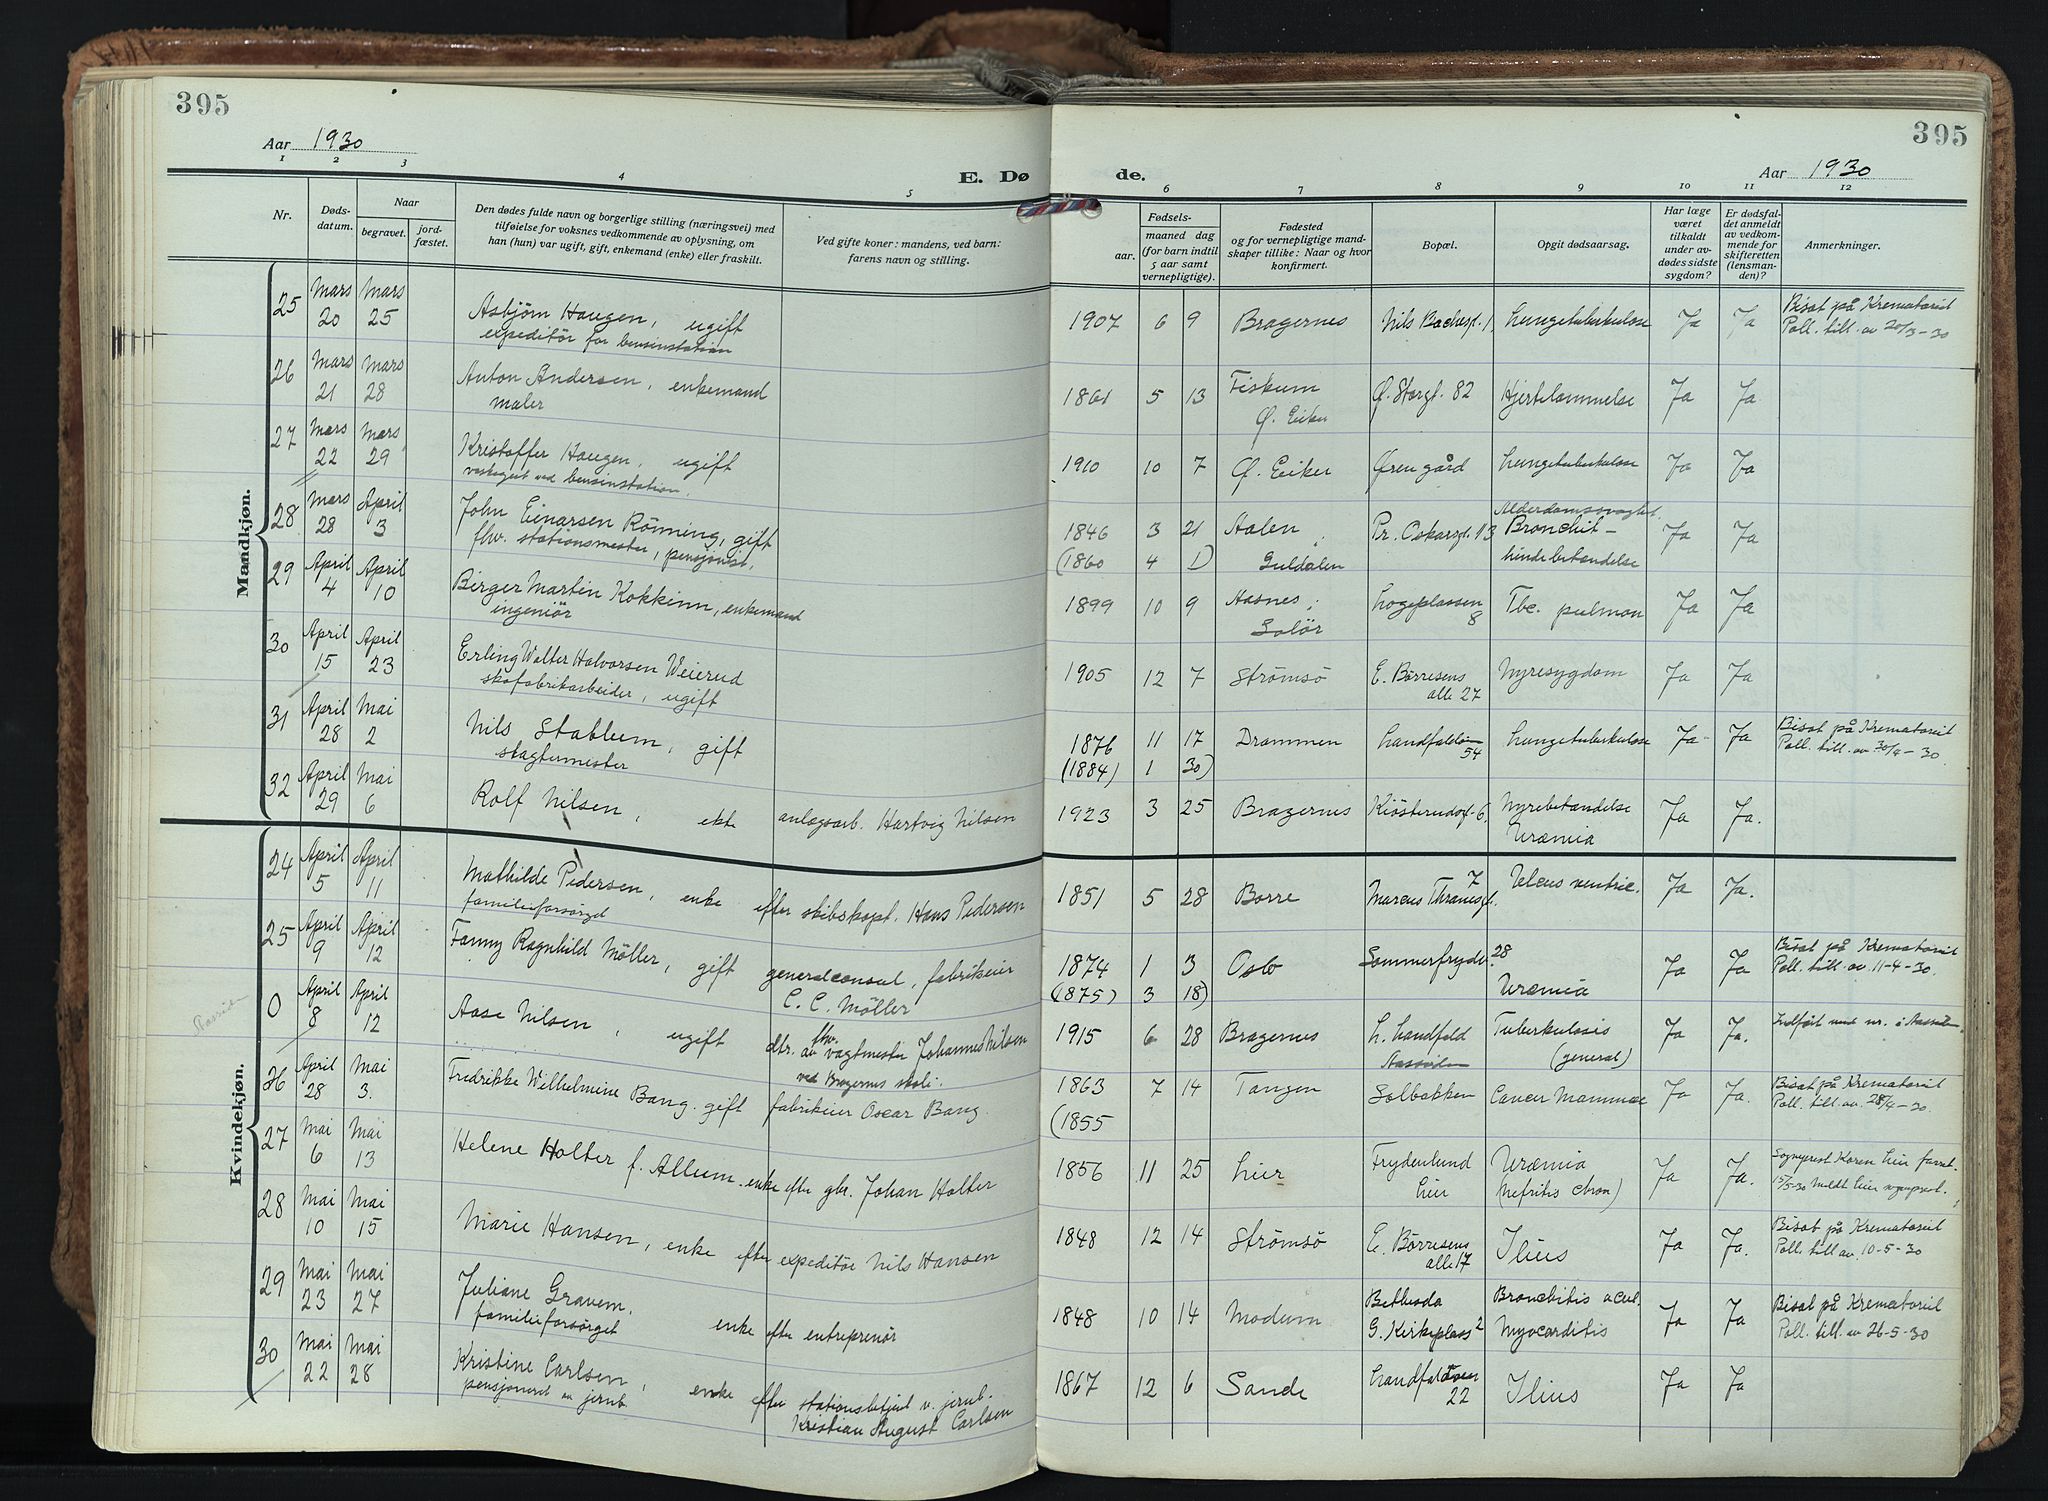 395
395
Aar 1930
Aar 1930
E. Dø de.
1 2 3 4 5 6 7 8 9 10 11 12
Nr.
Døds-
datum.
Naar
begravet.
jord-
fæstet.
Den dødes fulde navn og borgerlige stilling (næringsvei) med
tilføielse for voksnes vedkommende av oplysning, om
han (hun) var ugift, gift, enkemand (enke) eller fraskilt.
Ved gifte koner: mandens, ved barn:
farens navn og stilling.
Fødsels-
aar.
maaned dag
(for barn indtil
5 aar samt
vernepligtige).
Fødested
og for vernepligtige mand-
skaper tillike: Naar og hvor
konfirmert.
Bopæl.
Opgit dødsaarsag.
Har læge
været
tilkaldt
under av-
dødes sidste
sygdom?
Er dødsfal-
det anmeldt
av vedkom-
mende for
skifteretten
(lensman-
den)?
Anmerkninger.
Mandkjøn.
25 Mars 20 Mars 25 Asbjørn Haugen, ugift
expeditör for bensinstation
1907 6 9 Bragernes Nils Bachesgt. 1, Lungetuberkulose Ja Ja Bisat på Krematoriet
Poll. till. av 20/3-30
26 Mars 21 Mars 28 Anton Andersen, enkemand
maler
1861 5 13 Fiskum
Ø. Eiker
Ø. Storgt. 82 Hjertelammelse Ja Ja
27 Mars 22 Mars 29 Kristoffer Haugen, ugift
ved bensinstation.
1910 10 7 Ø. Eiker Øren gård Lungetuberkulose Ja Ja
28 Mars 28 April 3 John Einarsen Rönning, gift
fhv. stationsmester, pensjonist,
1846 3 21 Aalen,
(1860 4 1) Guldalen
Pr. Oskarsgt. 13 Alderdomssvaghet
Bronchit-
hindebetændelse
Ja Ja
29 April 4 April 10 Birger Martin Kokkinn, enkemand
ingeniör
1899 10 9 Aasnes,
Solör
Logeplassen
8
Tbc. pulmon Ja Ja
30 April 15 April 23 Erling Walter Halvorsen Weierud
skofabrikarbeider, ugift
1905 12 7 Strømsö E. Börresens
alle 27
Nyresygdom Ja Ja
31 April 28 Mai 2 Nils Stablum, gift
slagtermester
1876 11 17 Drammen
(1884) 1 30)
Landfaldöen
54
Lungetuberkulose Ja Ja Bisat på Krematoriet
Poll. till. av 30/4-30
32 April 29 Mai 6 Rolf Nilsen, ekte anlægsarb. Hartvig Nilsen
1923 3 25 Bragernes Kiösterudgt. 6, Nyrebetændelse
Uræmia
Ja Ja.
Kvindekjøn.
24 April 5 April 11 Mathilde Pedersen, enke efter skibskapt. Hans Pedersen
familieforsörgd
1851 5 28 Borre Marcus Thranesgt. 7 Ulcus ventric. Ja Ja.
25 April 9 April 12 Fanny Ragnhild Möller, gift generalconsul, fabrikeier
C. C. Møller
1874 1 3 Oslo
(1875) 3 18)
Sommerfrydv. 28 Uræmia Ja Ja Bisat på Krematoriet
Poll. till. av. 11-4-30.
0 April 8 April 12 Aase Nilsen, ugift dtr. av fhv. vagtmester Johannes Nilsen
ved Bragernes skole.
1915 6 28 Bragernes L. Landfald
Aassiden
Tuberkulosis
(general)
Ja Ja. Indfört med nr. i Aassiden
26 April 28 Mai 3. Fredrikke Wilhelmine Bang. gift fabrikeier Oscar Bang.
1863 7 14 Tangen
(1855
Solbakken Cancer Mammae Ja Ja. Bisat på Krematoriet
Poll. till. av. 28/4-30.
27 Mai 6 Mai 13 Helene Holter f. Allum. enke efter gbr. Johan Holter
1856 11 25 Lier Frydenlund
Lier
Uræmia
(Nefritis chron)
Ja Ja. Sogneprest Koren Lier
15/5-30 Meldt Lier
28 Mai 10 Mai 15 Marie Hansen, enke efter expeditör Nils Hansen
1848 12 14 Strömsö E. Börresens
alle 17
Ilius Ja Ja. Bisat på Krematoriet
Poll. till av. 10-5-30
29 Mai 23 Mai 27 Juliane Gravem,
familieforsörget enke efter entreprenör
1848 10 14 Modum Bethesda
G. Kirkeplass 2
Bronchitis acut.
Myocarditis
Ja Ja Bisat på Krematoriet
Poll. till. av 26-5-30
30 Mai 22 Mai 28 Kristine Carlsen, enke efter stationsbetjent v. jernb.
pensjoneret av jernb. Kristian August Carlsen
1867 12 6 Sande Landfaldöen
22
Ilius Ja Ja